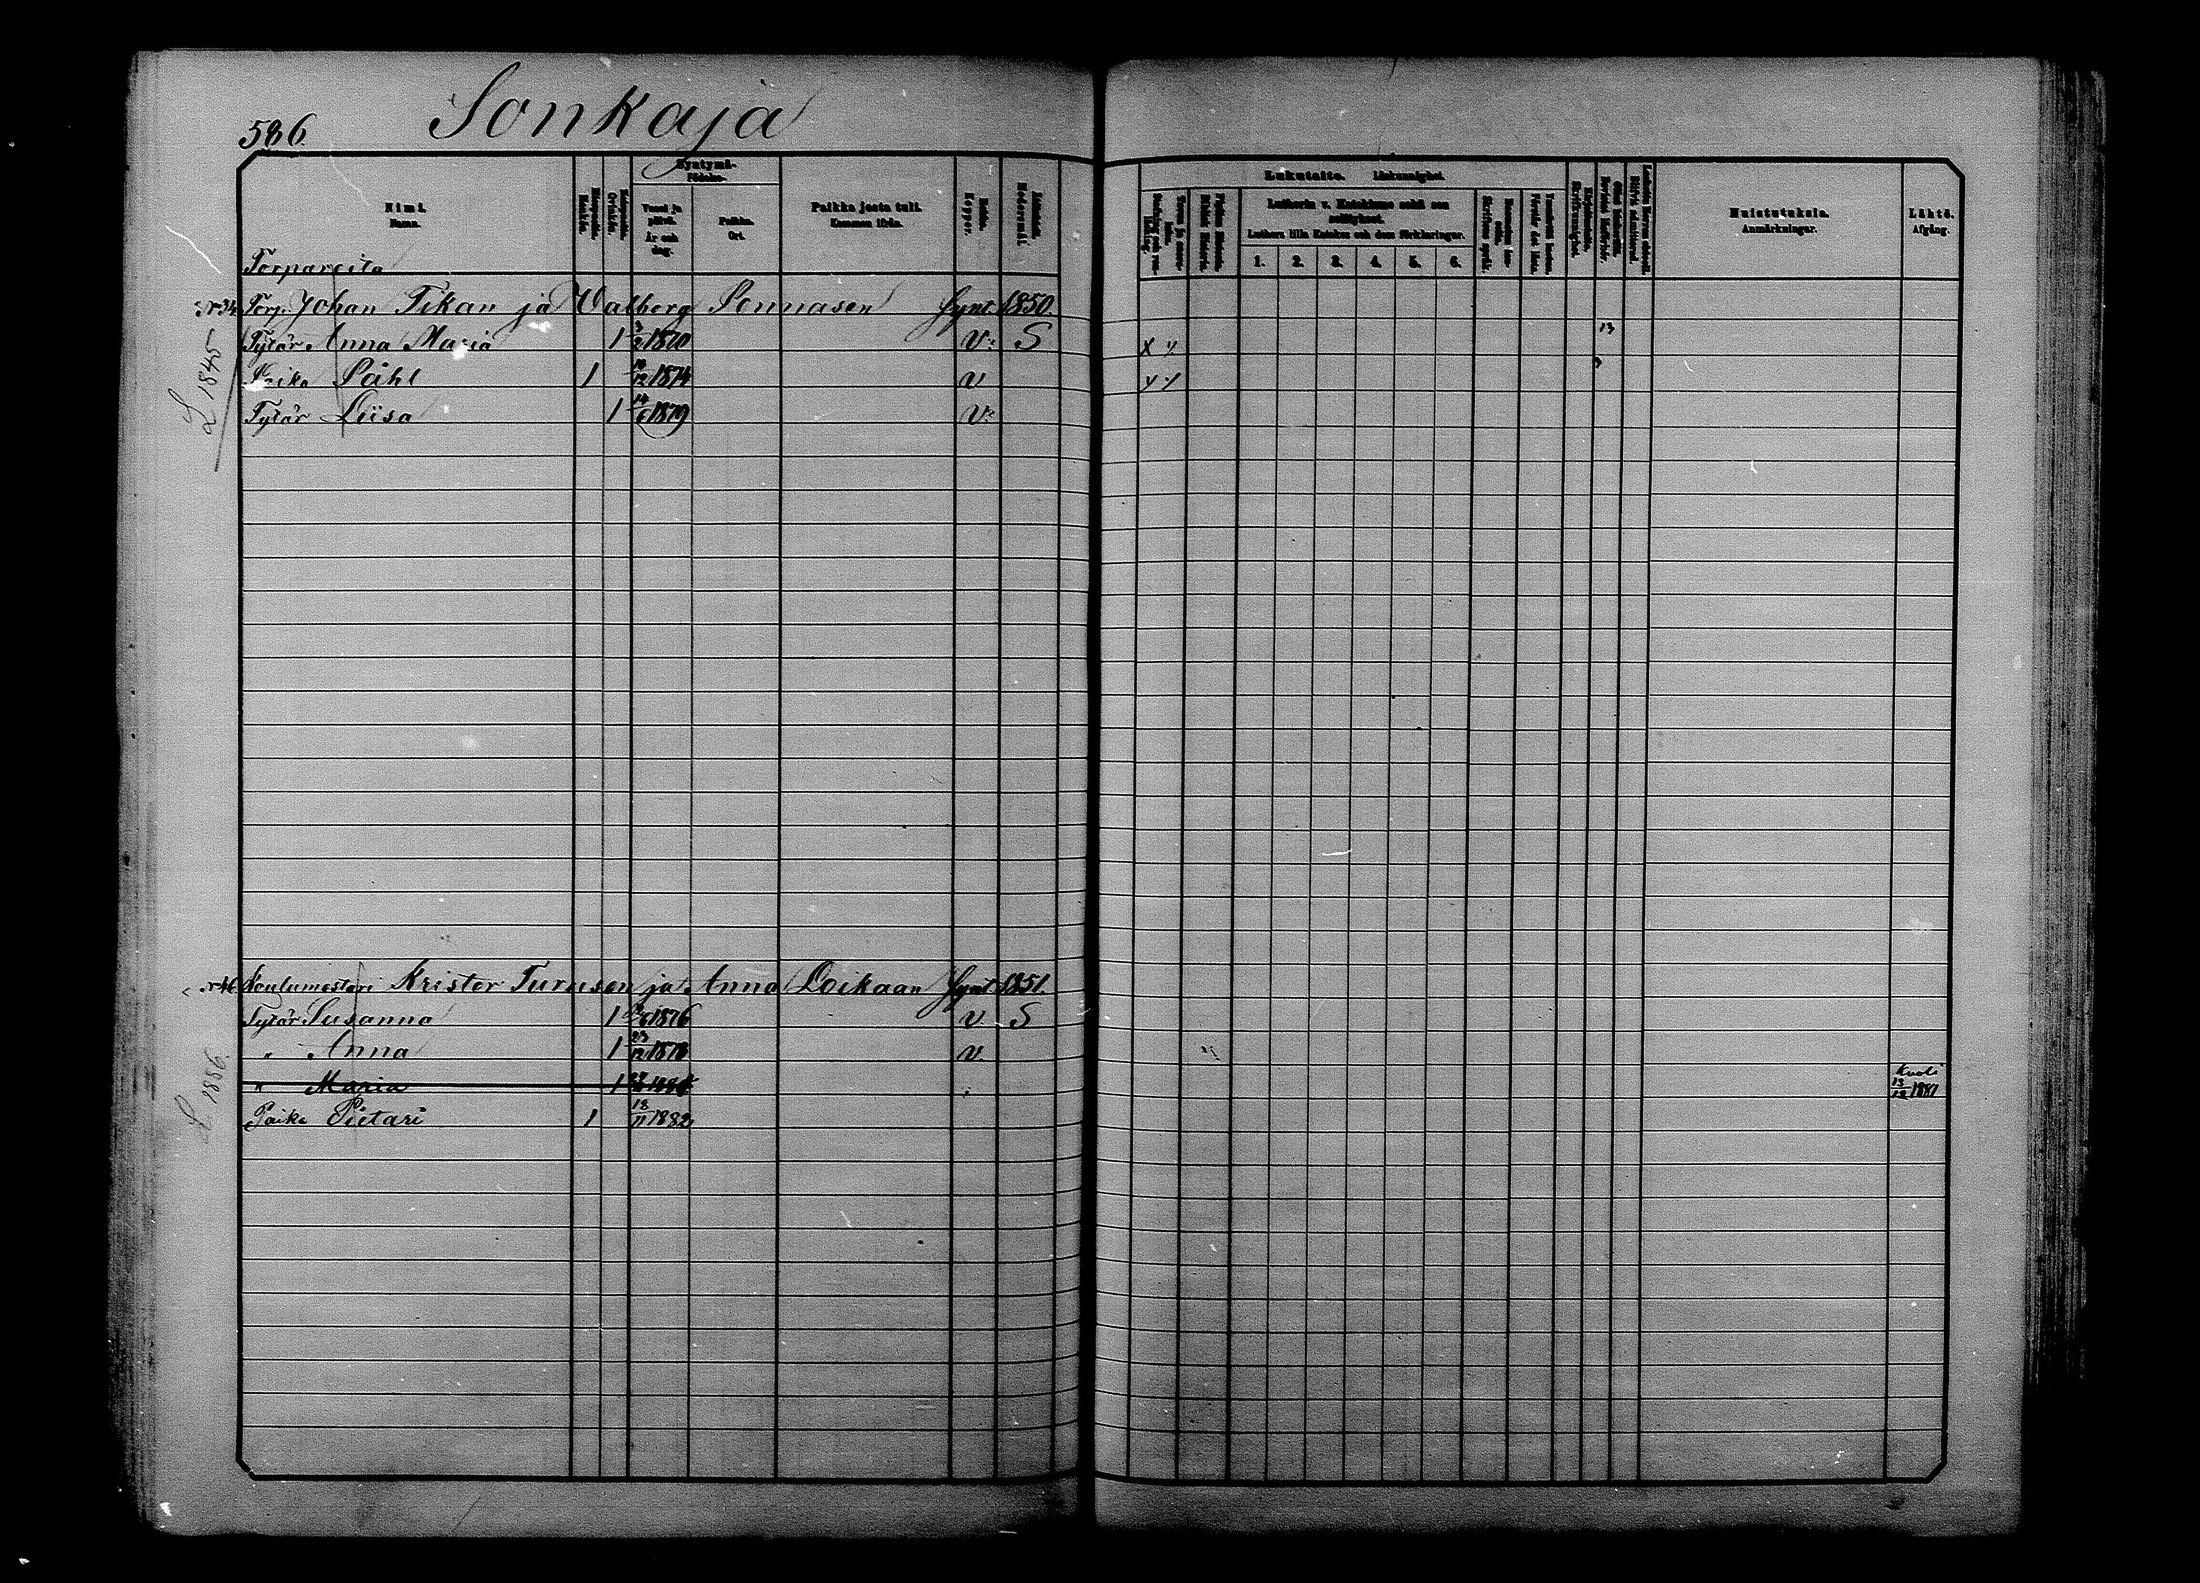 586.
Sonkaja
Nimi. Namn.
Syntymä- Födelse-
Vuosi ja päivä. År och dag.
Paikka. Ort.
Paikka josta tuli. Kommen ifrån.
Lukutaito. Läskunnighet.
Lutherin v. Katekismo sekä sen selitykset.
Luthers lilla Katekes och dess förklaringar.
1. 2. 3. 4. 5. 6.
Muistutuksia. Anmärkningar.
Lähtö. Afgång.
Torpareita
N 34 Torp. Johan Tikan ja Walberg Sonnasen Synt. 1850.
Tytär Anna Maria 1 1870 V. S X y 13
Poika Påhl 1 1874 v y y
Tytär Liisa 1 14/6 1879 V.
L 1845
N 46 Koulumestari Krister Turusen ja Anna Loikaan Synt 1851.
Tytär Susanna 1 1876 v. S
" Anna 1 23/12 1878 v.
" Maria 1 Kuoli 13/12 1881
Poika Pietari 1 18/11 1882
L. 1886.